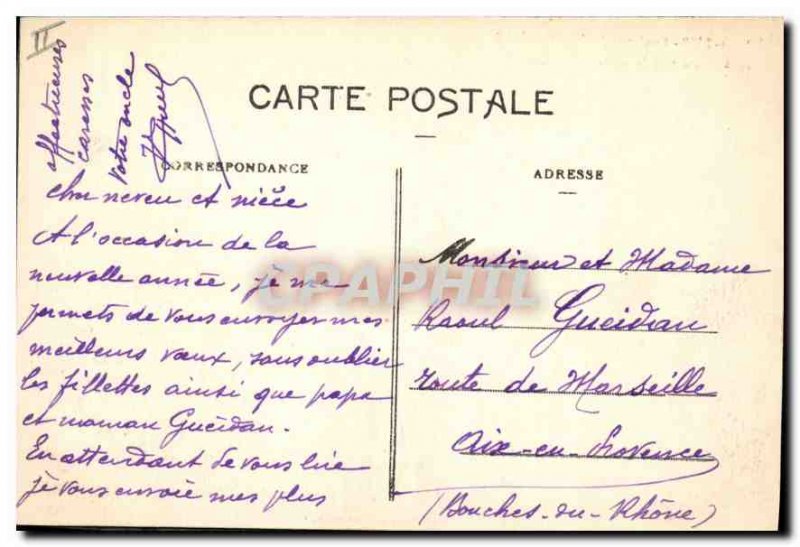 II
CARTE POSTALE
CORRESPONDANCE
Cher neveu et nièce
A l'occasion de la
nouvelle année, je me
permets de vous envoyer mes
meilleurs vœux, sans oublier
les fillettes ainsi que papa
et maman Gueidan.
En attendant de vous lire
je vous envoie mes plus
affectueuses
caresses
votre oncle
ADRESSE
Monsieur et Madame
Raoul Gueidan
route de Marseille
Aix-en-Provence
(Bouches-du-Rhône)
CPAPHIL